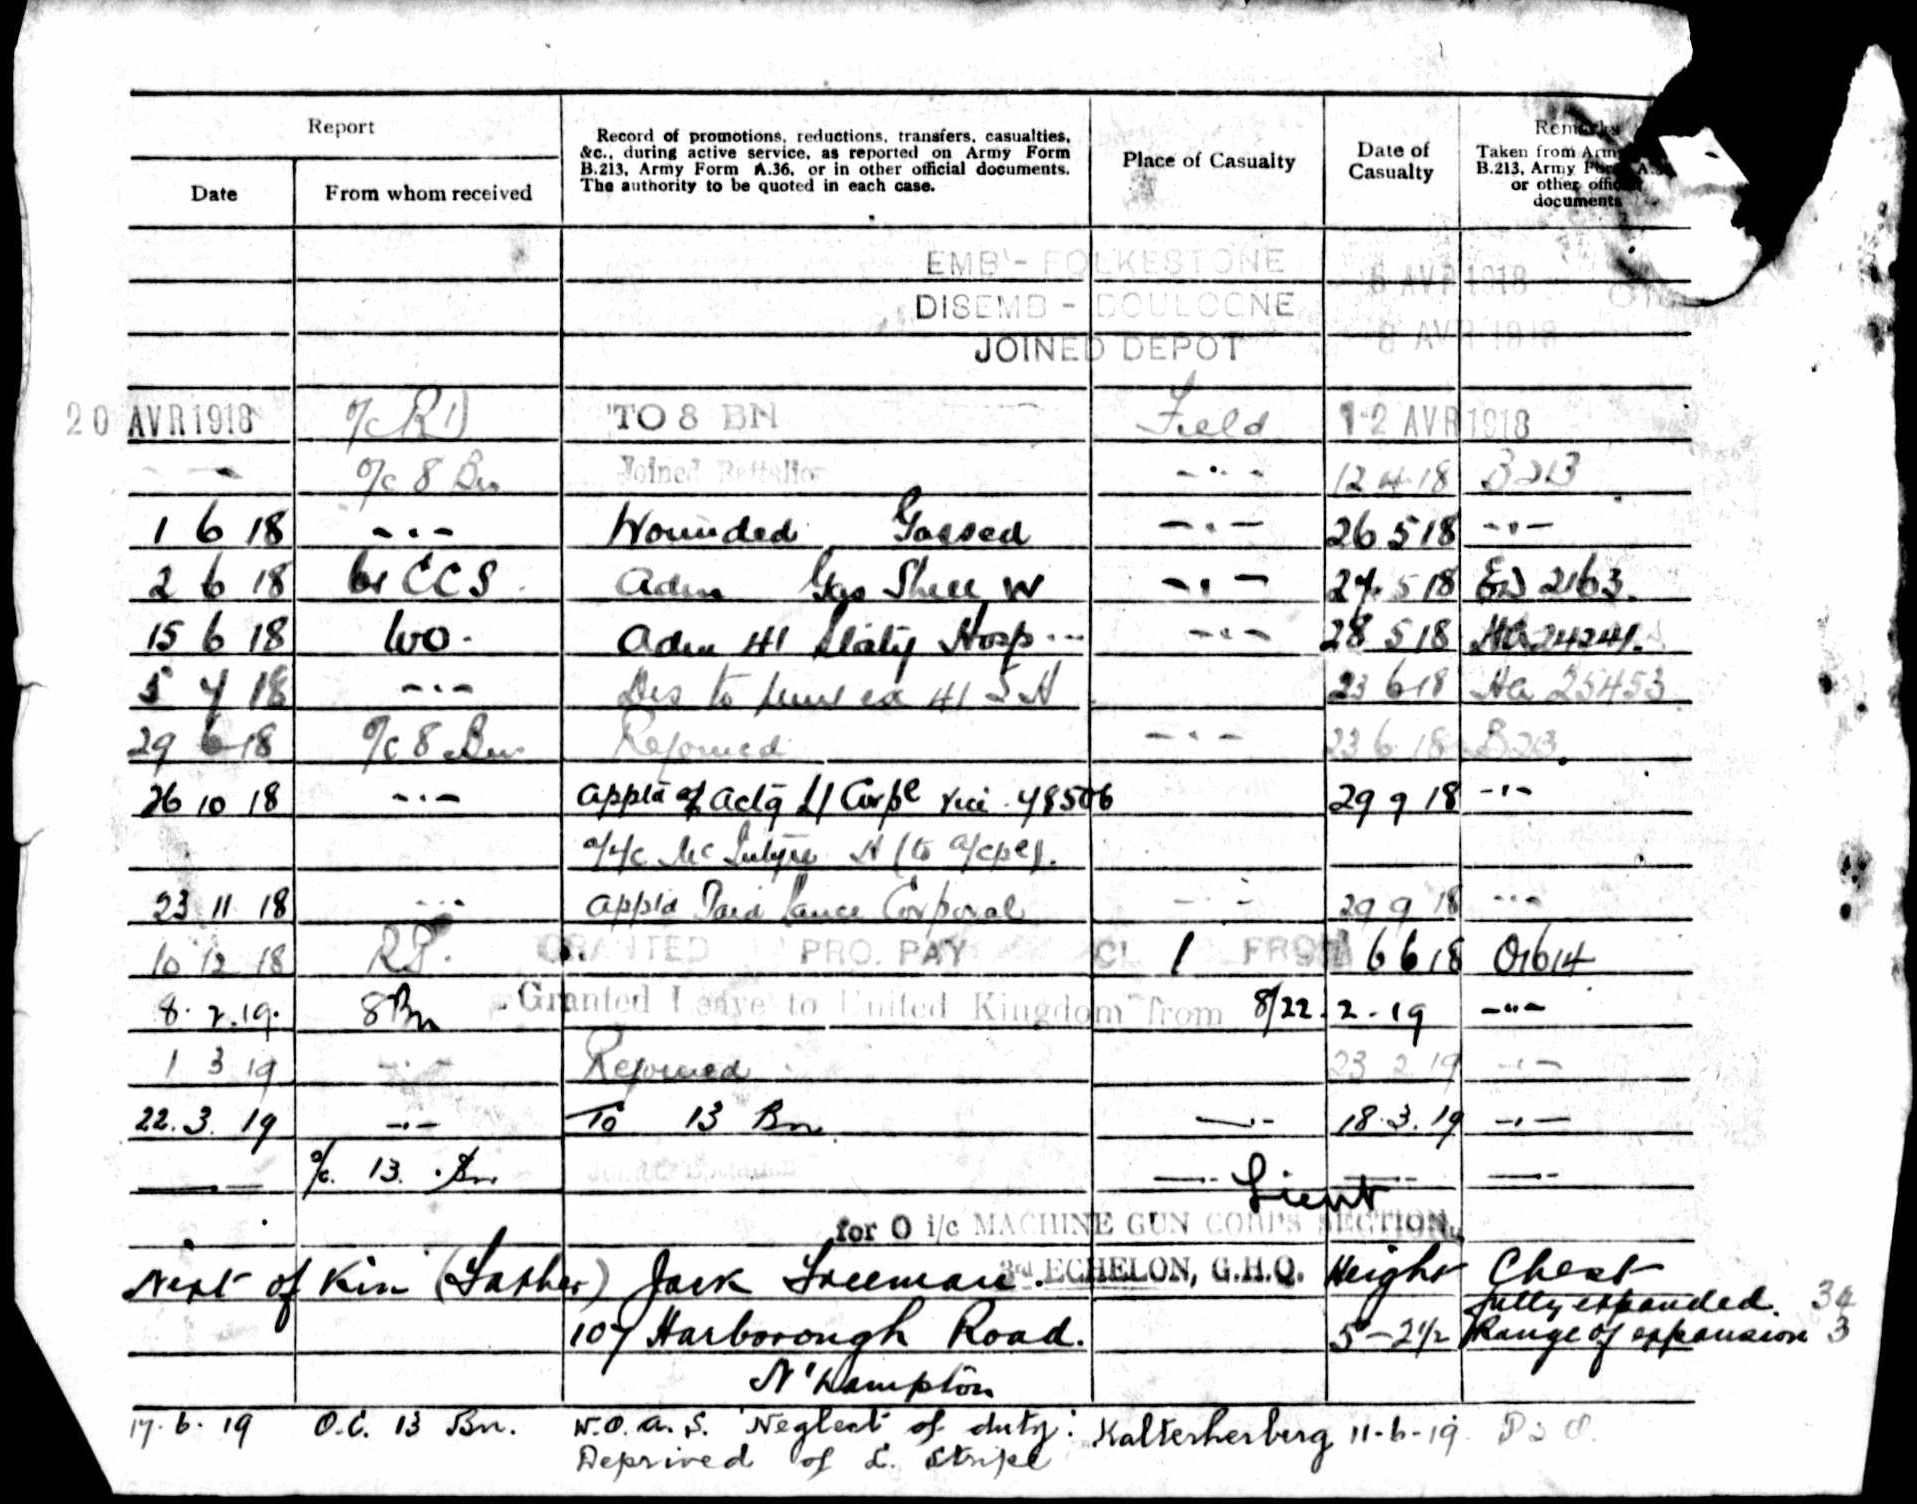 Report
Record of promotions, reductions, transfers, casualties,
&c., during active service, as reported on Army Form
B.213, Army Form A.36, or in other official documents.
The authority to be quoted in each case.
Place of Casualty
Date of
Casualty
Remarks
Taken from Army
B.213, Army Form A.
or other official
documents
Date
From whom received
EMB - FOLKESTONE
DISEMB - BOULOGNE 6 AVR 1918
JOINED DEPOT 8 AVR 1918
20 AVR 1918 O/c RD TO 8 BN Field 12 AVR 1918
O/c 8 Bn Joined Battalion 12 4 18 B213
1 6 18 Wounded Gassed 26 5 18
2 6 18 CCS Adm Gas Shell W 27 5 18 2163
15 6 18 WO Adm 41 Staty Hosp 28 5 18
5 7 18 Dis to ex 41 S H 23 6 18 HA 25453
29 6 18 O/c 8 Bn Rejoined 23 6 18 B213
26 10 18 Actg L/Corpl vice 48506 29 9 18
McIntyre H (to a/cpl).
23 11 18 Appld Paid Lance Corporal 29 9 18
10 12 18 GRANTED PRO. PAY CL 1 FROM 6 6 18 O1614
8. 2. 19. 8 Bn Granted Leave to United Kingdom from 8/22. 2. 19
1 3 19 Rejoined 23 2 19
22. 3. 19 To 13 Bn 18. 3. 19
o/c. 13. Bn
Lieut
for O i/c MACHINE GUN CORPS SECTION,
3rd ECHELON, G.H.Q.
Next of Kin (Father) Jack Freeman. Height Chest
fully expanded. 34
107 Harborough Road. 5-2½ Range of expansion 3
N'hampton
17. 6. 19 O.C. 13 Bn. W.O.A.S. Neglect of duty: Kalterherberg 11-6-19
Deprived of L. Stripe